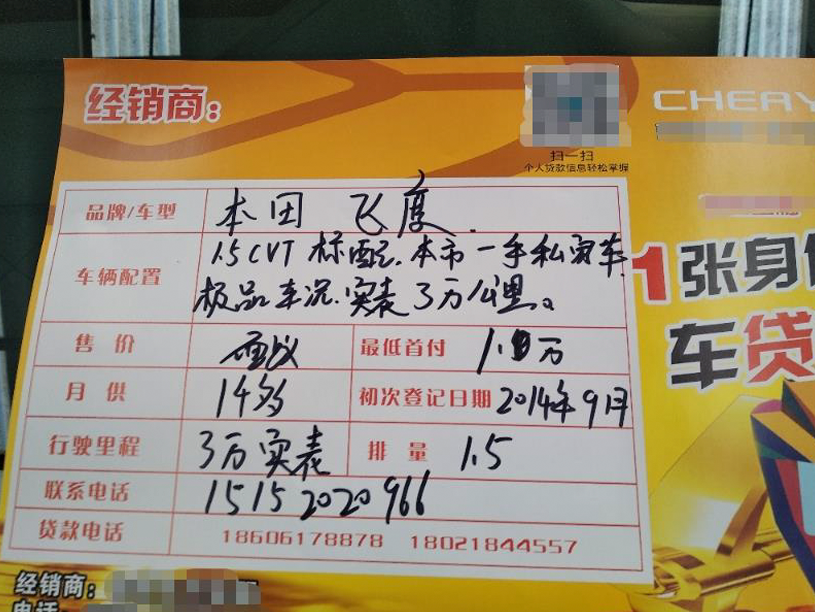 经销商:
CHERY
扫一扫
个人贷款信息轻松掌握
品牌/车型 本田 飞度.
车辆配置 1.5CVT 标配.本市一手私家车.
极品车况.实表3万公里。
售价 面议 最低首付 1.0万
月供 14多 初次登记日期 2014年9月
行驶里程 3万实表 排量 1.5
联系电话 15152020966
贷款电话 18606178878 18021844557
1张身
车贷
经销商:
电话: